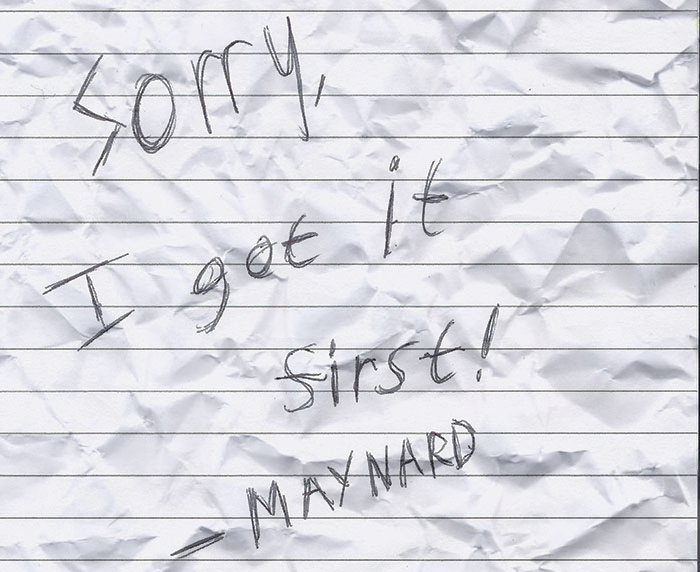 Sorry,
I got it
first!
– MAYNARD